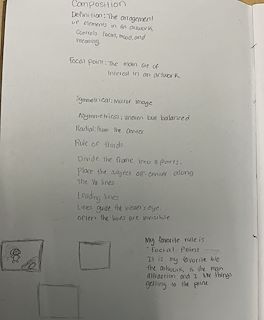 Composition
Definition: The arragement
of elements in an artwork
Controls focus, mood, and
meaning.
Focal point: The main
interest in an artwork
Symmetrical: mirror image
Asymmetrical: uneven but balanced
Radial: from the center
Rule of thirds
Divide the frame into
place the subject off-center along
the lines
Leading lines
Lines guide the viewer's eye.
often the lines are invisible
My favorite rule is
Focal Point
It is my favorite
the artwork, is the main
attraction and I like things
getting to the point